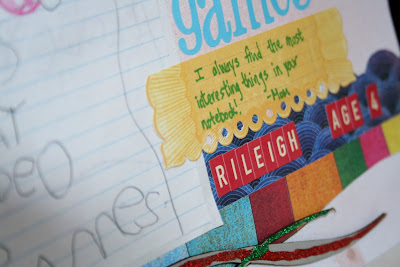 games
I always find the most
interesting things in your
notebook!
-Mom
RILEIGH AGE 4
DEO
games